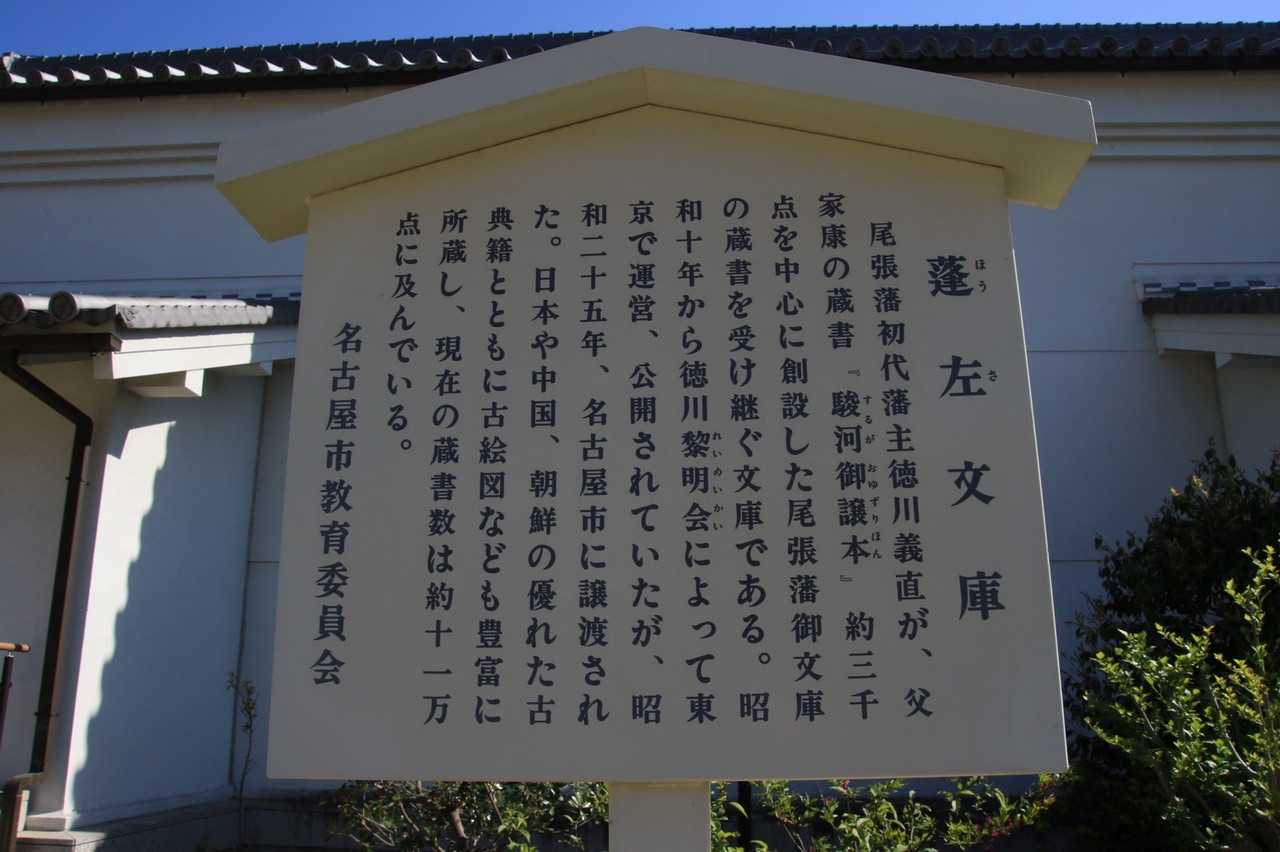 蓬左文庫
ほうさ
尾張藩初代藩主徳川義直が、父
家康の蔵書『駿河御譲本』約三千
するがおゆずりほん
点を中心に創設した尾張藩御文庫
の蔵書を受け継ぐ文庫である。昭
和十年から徳川黎明会によって東
れいめいかい
京で運営、公開されていたが、昭
和二十五年、名古屋市に譲渡され
た。日本や中国、朝鮮の優れた古
典籍とともに古絵図なども豊富に
所蔵し、現在の蔵書数は約十一万
点に及んでいる。
名古屋市教育委員会